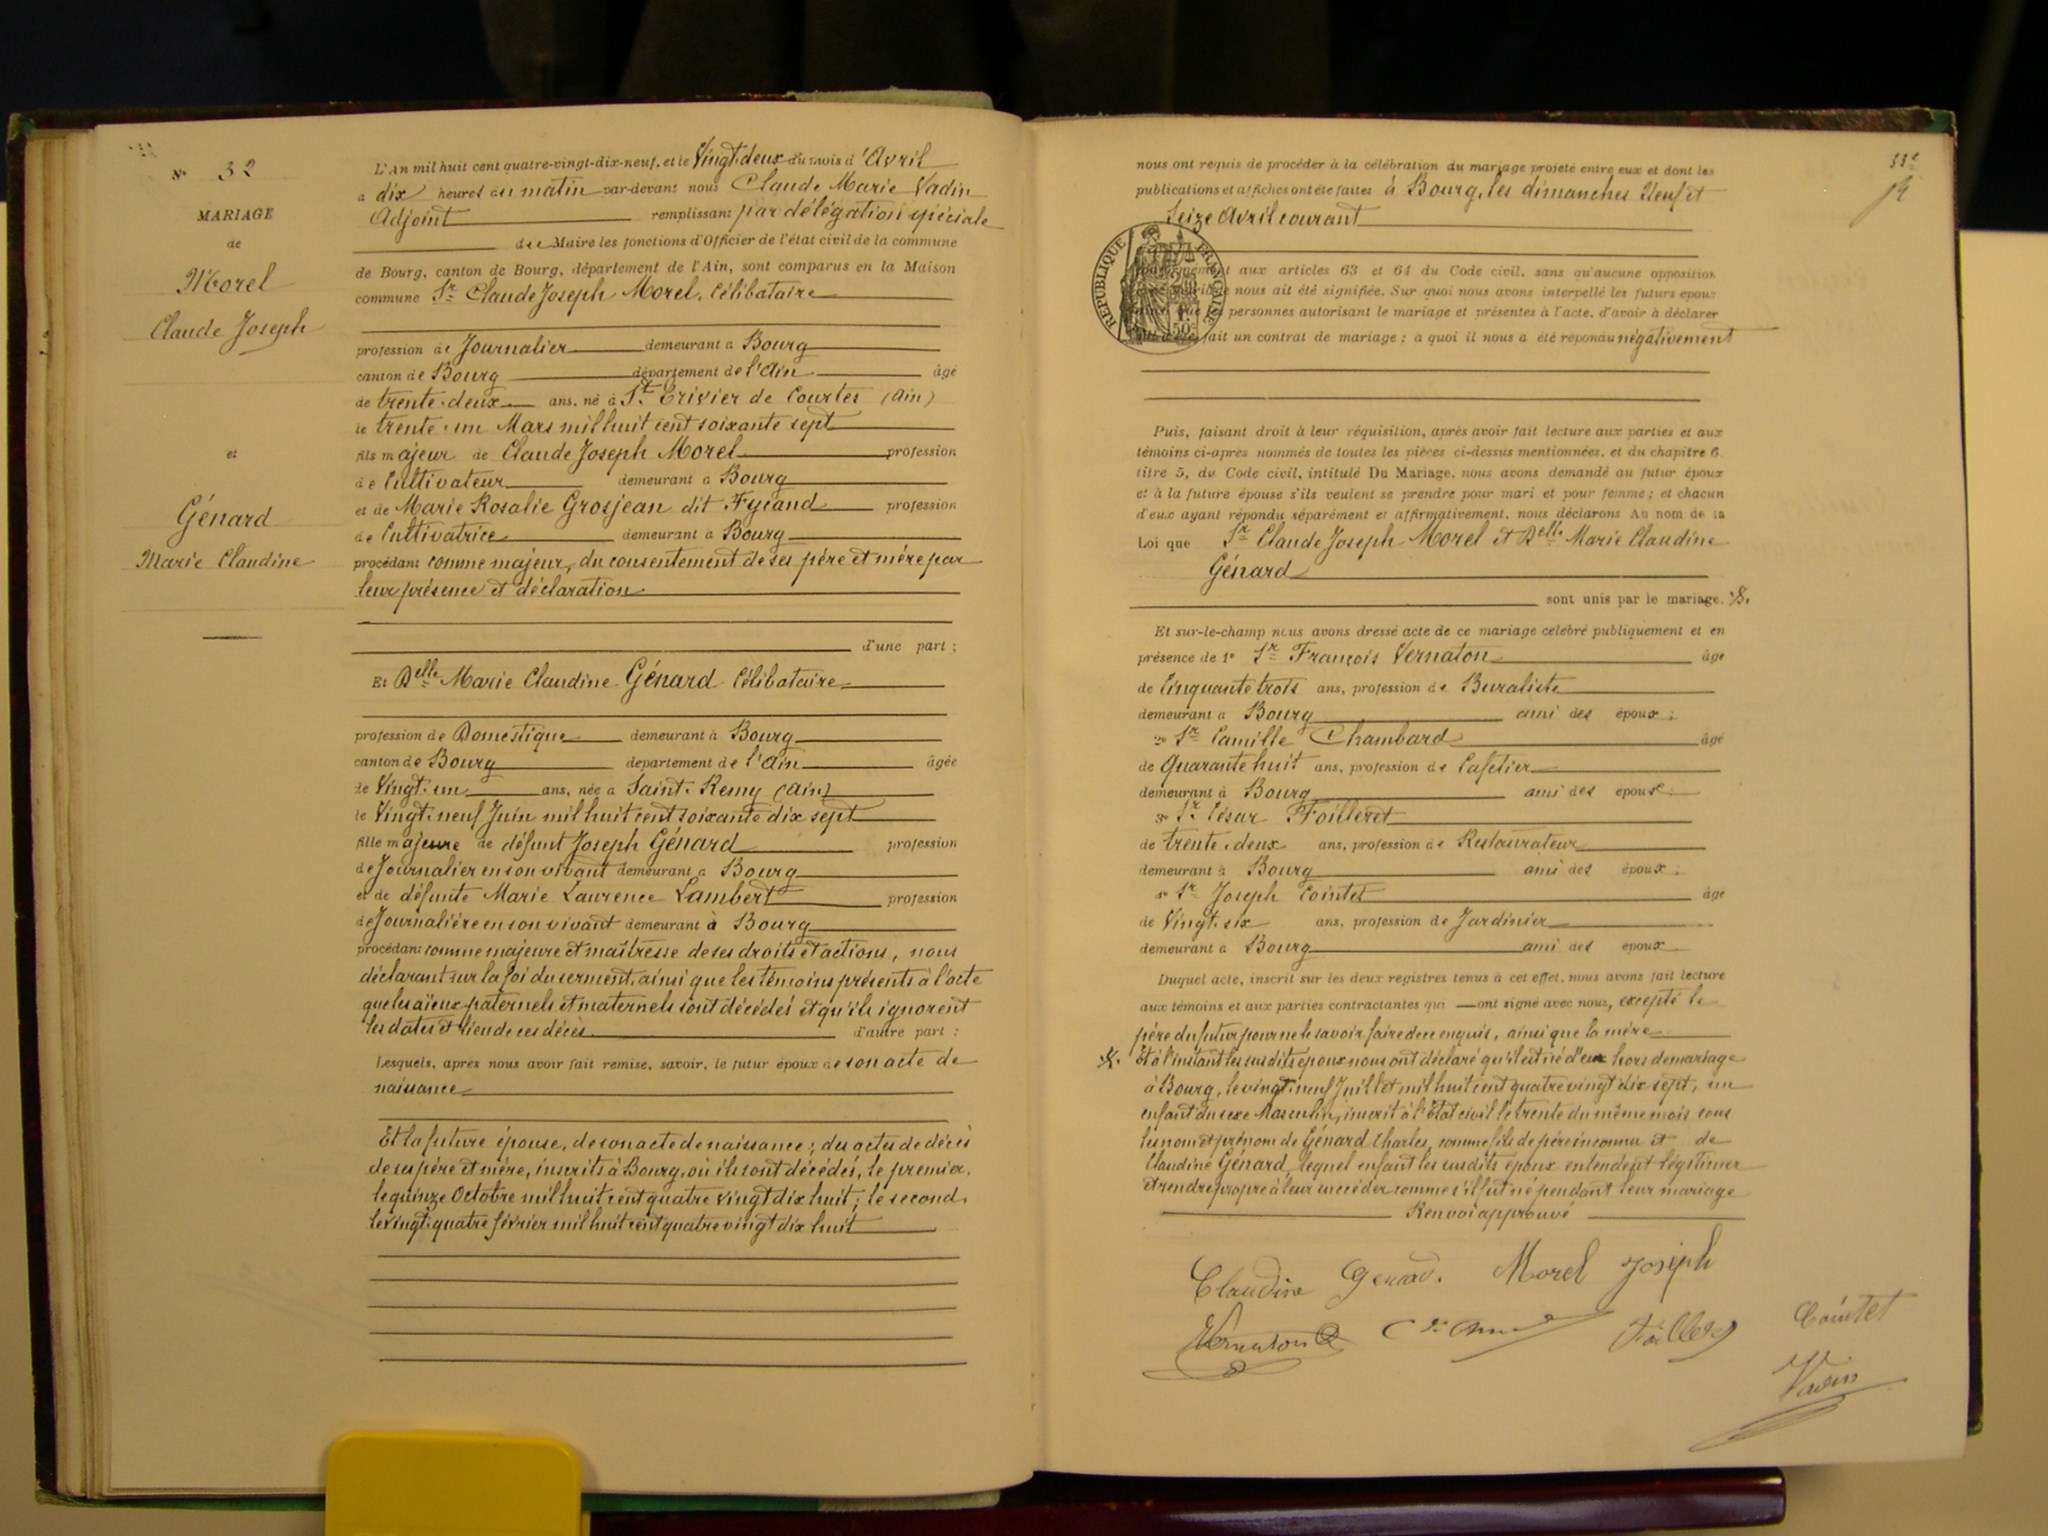 N° 32
MARIAGE
de
Morel
Claude Joseph
et
Génard
Marie Claudine
L'An mil huit cent quatre-vingt-dix-neuf, et le Vingt deux du mois d'Avril
à dix heures du matin par-devant nous Claude Marie Vadin
Adjoint remplissant par délégation spéciale
du Maire les fonctions d'Officier de l'état civil de la commune
de Bourg, canton de Bourg, département de l'Ain, sont comparus en la Maison
commune Sr Claude Joseph Morel, Célibataire
profession de Journalier demeurant à Bourg
canton de Bourg département de l'Ain âgé
de trente-deux ans, né à St Trivier de Courtes (Ain)
le trente-un Mars mil huit cent soixante sept
fils majeur de Claude Joseph Morel profession
de Cultivateur demeurant à Bourg
et de Marie Rosalie Grosjean dit Fycand profession
de Cultivatrice demeurant à Bourg
procédant comme majeur, du consentement de ses père et mère par
leur présence et déclaration
d'une part ;
Et Delle Marie Claudine Génard Célibataire
profession de Domestique demeurant à Bourg
canton de Bourg département de l'Ain âgée
de Vingt-un ans, née à Saint-Remy (Ain)
le Vingt-neuf Juin mil huit cent soixante dix sept
fille majeure de défunt Joseph Génard profession
de Journalier en son vivant demeurant à Bourg
et de défunte Marie Laurence Lambert profession
de Journalière en son vivant demeurant à Bourg
procédant comme majeure et maîtresse de ses droits et actions, nous
déclarant sur la foi du serment, ainsi que les témoins présents à l'acte
que les aïeux paternels et maternels sont décédés et qu'ils ignorent
les dates et lieu de ces décès d'autre part ;
Lesquels, après nous avoir fait remise, savoir, le futur époux de son acte de
naissance
Et la future épouse, de son acte de naissance ; des actes de décès
de ses père et mère, inscrits à Bourg, où ils sont décédés, le premier,
le quinze Octobre mil huit cent quatre vingt dix huit ; le second,
le vingt-quatre février mil huit cent quatre vingt dix huit
nous ont requis de procéder à la célébration du mariage projeté entre eux et dont les
publications et affiches ont été faites à Bourg, les dimanches Neuf et
Seize Avril courant
RÉPUBLIQUE FRANÇAISE
aux articles 63 et 64 du Code civil, sans qu'aucune opposition
nous ait été signifiée. Sur quoi nous avons interpellé les futurs époux
personnes autorisant le mariage et présentes à l'acte, d'avoir à déclarer
fait un contrat de mariage ; à quoi il nous a été répondu négativement
Puis, faisant droit à leur réquisition, après avoir fait lecture aux parties et aux
témoins ci-après nommés de toutes les pièces ci-dessus mentionnées, et du chapitre 6
titre 5, du Code civil, intitulé Du Mariage, nous avons demandé au futur époux
et à la future épouse s'ils veulent se prendre pour mari et pour femme ; et chacun
d'eux ayant répondu séparément et affirmativement, nous déclarons Au nom de la
Loi que Sr Claude Joseph Morel et Delle Marie Claudine
Génard
sont unis par le mariage.
Et sur-le-champ nous avons dressé acte de ce mariage célébré publiquement et en
présence de 1° Sr François Vernaton âgé
de Cinquante trois ans, profession de Buraliste
demeurant à Bourg ami des époux ;
2° Sr Camille Chambard âgé
de Quarante huit ans, profession de Cafetier
demeurant à Bourg ami des époux ;
3° Sr César Foilleret
de trente-deux ans, profession de Restaurateur
demeurant à Bourg ami des époux ;
4° Sr Joseph Cointet âgé
de Vingt-six ans, profession de Jardinier
demeurant à Bourg ami des époux
Duquel acte, inscrit sur les deux registres tenus à cet effet, nous avons fait lecture
aux témoins et aux parties contractantes qui ont signé avec nous, excepté le
père du futur pour ne le savoir faire de ce enquis, ainsi que la mère
Et à l'instant les susdits époux nous ont déclaré qu'il est né d'eux hors de mariage
à Bourg, le vingt-neuf Juillet mil huit cent quatre vingt dix sept, un
enfant du sexe Masculin, inscrit à l'Etat civil le trente du même mois sous
les nom et prénom de Génard Charles, comme fils de père inconnu et de
Claudine Génard, lequel enfant les susdits époux entendent légitimer
et rendre propre à leur succéder comme s'il fut né pendant leur mariage
Renvoi approuvé
Claudine Genard. Morel Joseph
Vernaton
Cointet
Vadin